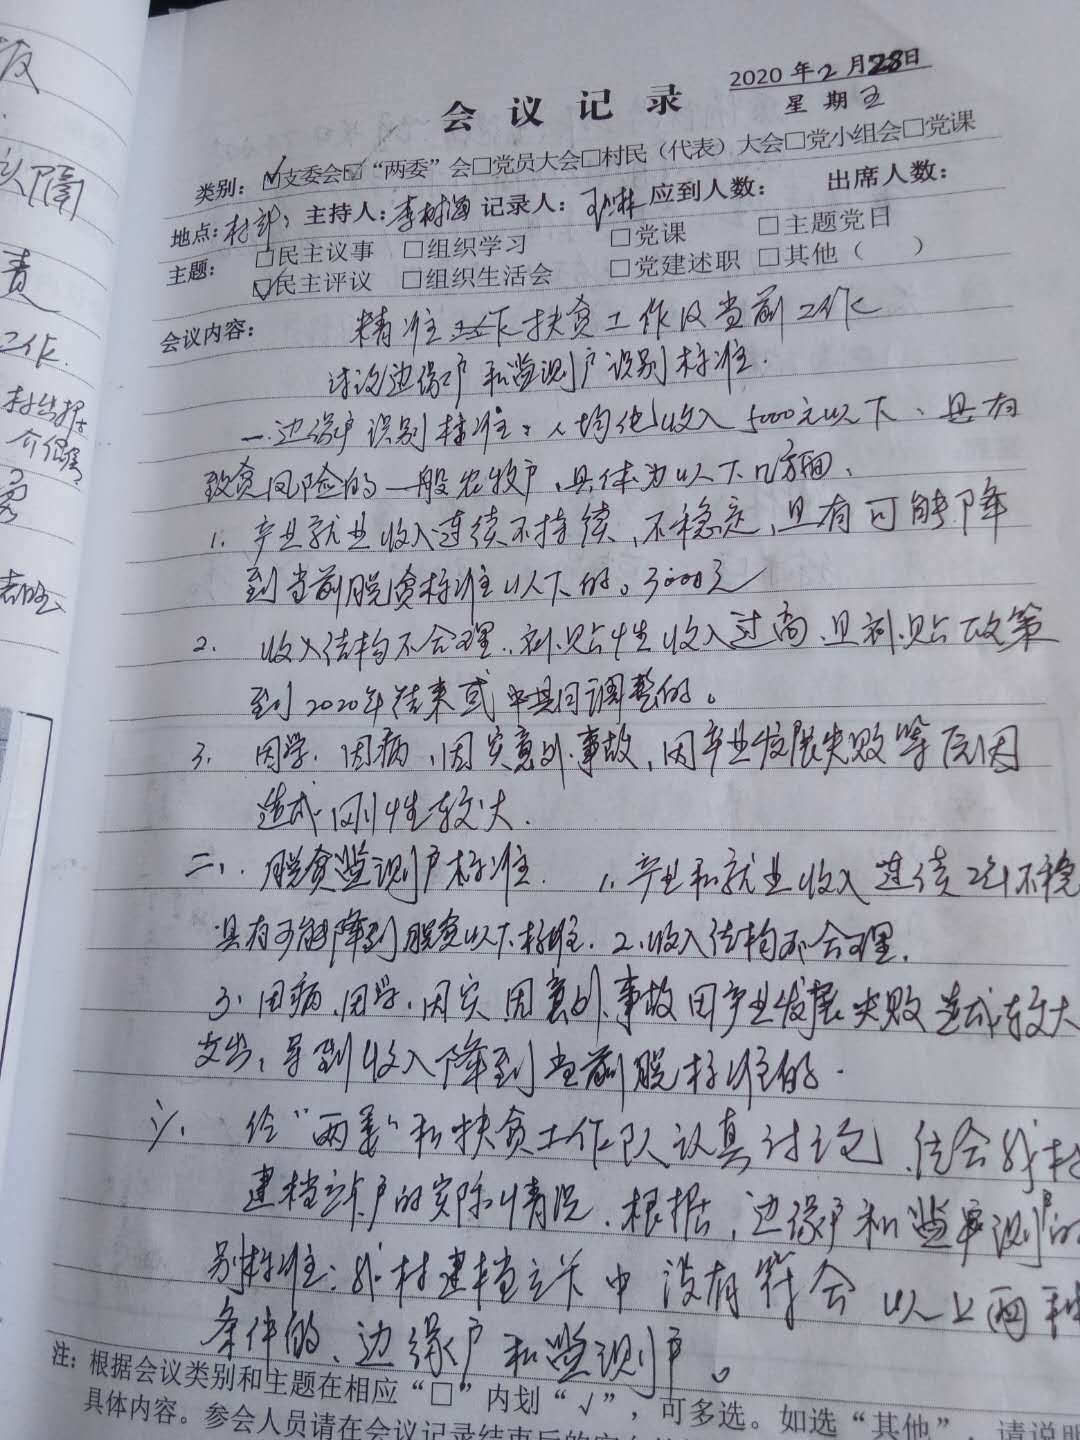 2020年2月28日
会议记录
星期五
类别：☑支委会☑“两委”会□党员大会□村民（代表）大会□党小组会□党课
地点：村部 主持人：李树海 记录人： 应到人数： 出席人数：
主题：□民主议事 □组织学习 □党课 □主题党日
☑民主评议 □组织生活会 □党建述职 □其他（ ）
会议内容： 精准扶贫工作及当前工作
讨论边缘户和监测户识别标准.
一.边缘户识别标准：人均纯收入5000元以下、具有
致贫风险的一般农牧户，具体为以下几方面、
1. 产业就业收入连续不持续，不稳定，且有可能降
到当前脱贫标准以下的。3000元
2. 收入结构不合理，补贴性收入过高，且补贴政策
到2020年结束或中共同调整的。
3. 因学，因病，因灾意外事故，因产业发展失败等原因
造成刚性较大.
二、脱贫监测户标准. 1、产业和就业收入连续 不稳
具有可能降到脱贫以下标准. 2.收入结构不合理.
3、因病，因学，因灾因意外事故因产业发展失败造成较大
支出，导致收入降到当前脱标准的.
经“两委”和扶贫工作队认真讨论，结合我村
建档立卡户的实际情况，根据，边缘户和监测户的
别标准：我村建档立卡中没有符合以上两种
条件的、边缘户和监测户。
注：根据会议类别和主题在相应“□”内划“√”，可多选。如选“其他”，请说明
具体内容。参会人员请在会议记录结束后的
友
责
工作.